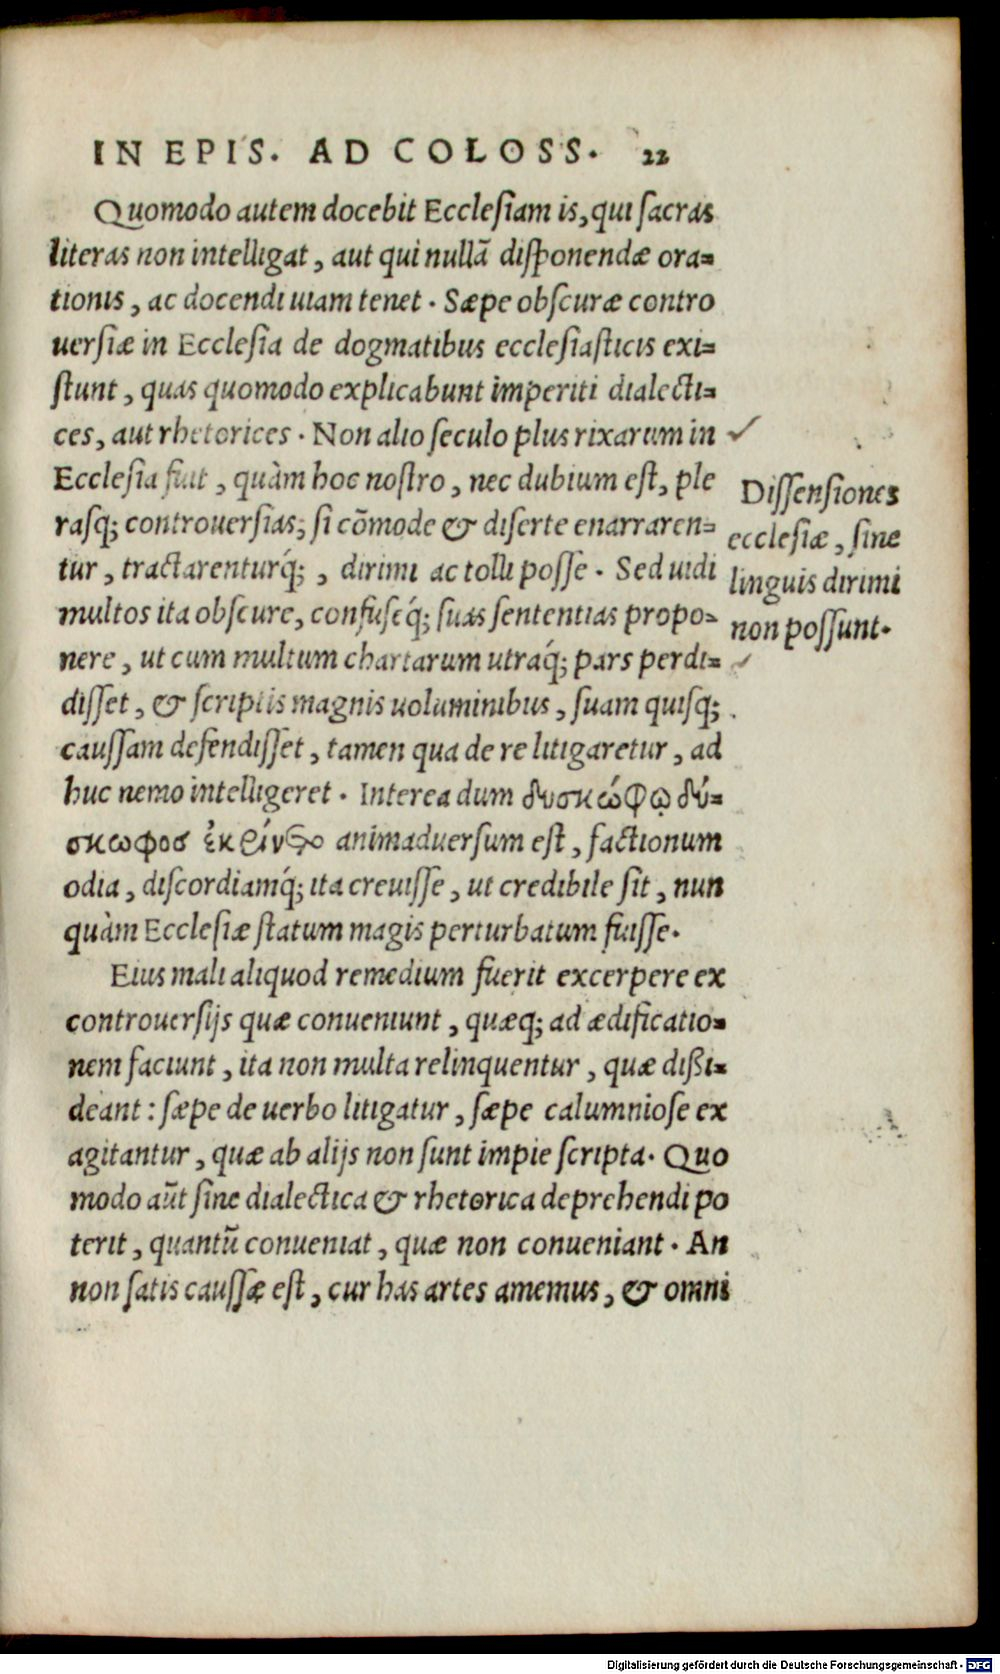 IN EPIS. AD COLOSS. 22
Quomodo autem docebit Ecclesiam is, qui sacras
literas non intelligat, aut qui nullā disponendæ ora=
tionis, ac docendi uiam tenet. Sæpe obscuræ contro
uersiæ in Ecclesia de dogmatibus ecclesiasticis exi=
stunt, quas quomodo explicabunt imperiti dialecti=
ces, aut rhetorices. Non alio seculo plus rixarum in
Ecclesia fuit, quàm hoc nostro, nec dubium est, ple
rasq; controuersias, si cōmode & diserte enarraren=
tur, tractarenturq́;, dirimi ac tolli posse. Sed uidi
multos ita obscure, confuseq́; suas sententias propo=
nere, ut cum multum chartarum utraq́; pars perdi=
disset, & scriptis magnis uoluminibus, suam quisq;
caussam defendisset, tamen qua de re litigaretur, ad
huc nemo intelligeret. Interea dum δυσκώφῳ δύ=
σκωφος ἐκρίνετο animaduersum est, factionum
odia, discordiamq́; ita creuisse, ut credibile sit, nun
quàm Ecclesiæ statum magis perturbatum fuisse.
Eius mali aliquod remedium fuerit excerpere ex
controuersijs quæ conueniunt, quæq; ad ædificatio=
nem faciunt, ita non multa relinquentur, quæ dißi=
deant: sæpe de uerbo litigatur, sæpe calumniose ex
agitantur, quæ ab alijs non sunt impie scripta. Quo
modo aūt sine dialectica & rhetorica deprehendi po
terit, quantū conueniat, quæ non conueniant. An
non satis caussæ est, cur has artes amemus, & omni
Dissensiones
ecclesiæ, sine
linguis dirimi
non possunt.
Digitalisierung gefördert durch die Deutsche Forschungsgemeinschaft - DFG